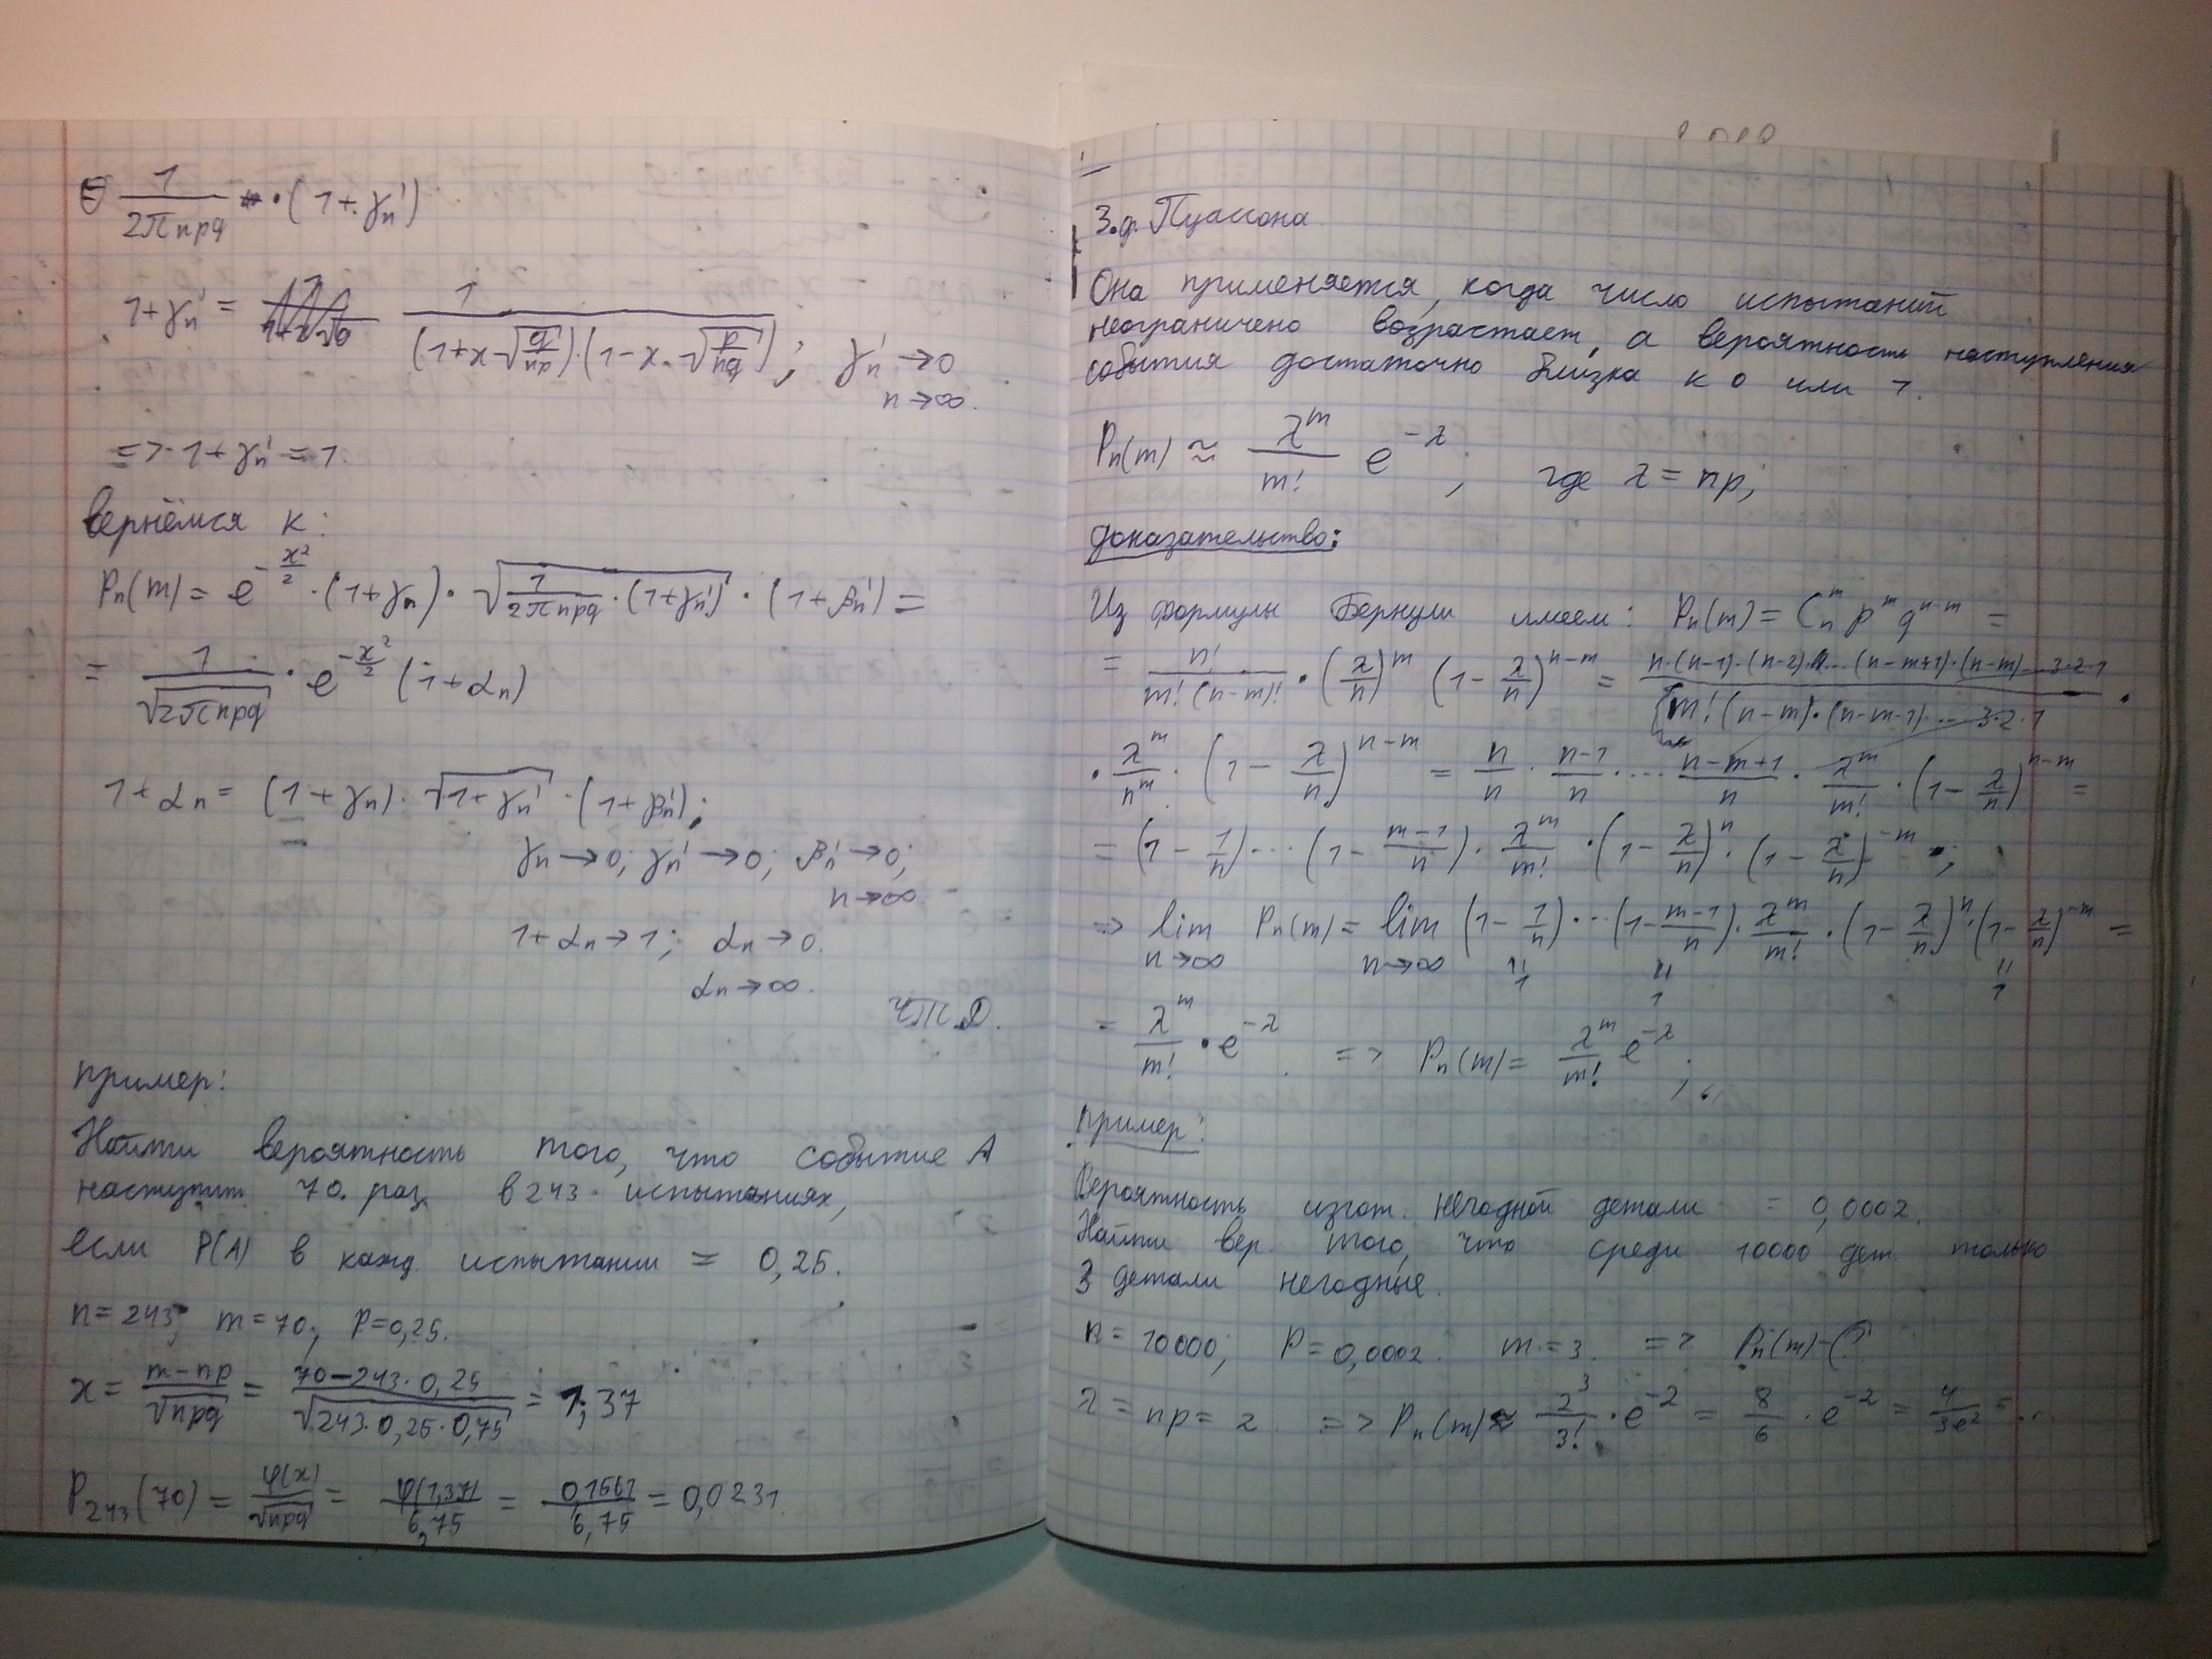 ⊜ 1/(2πnpq) · (1+γn')
1+γn' = 1/((1+x√(q/np))·(1-x·√(p/nq))); γn' → 0
n→∞.
=> 1+γn' = 1.
вернёмся к:
Pn(m) = e^(-x²/2) · (1+γn) · √(1/(2πnpq) · (1+γn')) · (1+βn') =
= 1/√(2πnpq) · e^(-x²/2) (1+αn)
1+αn = (1+γn) · √(1+γn') · (1+βn');
γn → 0; γn' → 0; βn' → 0;
n→∞
1+αn → 1; αn → 0.
αn → ∞.
ЧТД.
пример:
Найти вероятность того, что событие А
наступит 70 раз в 243 испытаниях,
если P(A) в кажд испытании = 0,25.
n=243; m=70; P=0,25.
x = (m-np)/√(npq) = (70-243·0,25)/√(243·0,25·0,75) = 1,37
P243(70) = φ(x)/√(npq) = φ(1,37)/6,75 = 0,1561/6,75 = 0,0231
3.ф. Пуассона
Она применяется, когда число испытаний
неограничено возрастает, а вероятность наступления
события достаточно близка к 0 или 1.
Pn(m) ≈ λ^m/m! e^(-λ), где λ = np;
доказательство:
Из формулы Бернули имеем: Pn(m) = Cn^m p^m q^(n-m) =
= n!/(m!(n-m)!) · (λ/n)^m (1-λ/n)^(n-m) = n·(n-1)·(n-2)·...(n-m+1)·(n-m)...3·2·1/(m!(n-m)·(n-m-1)·...3·2·1) ·
· λ^m/n^m · (1-λ/n)^(n-m) = n/n · (n-1)/n · ... (n-m+1)/n · λ^m/m! · (1-λ/n)^(n-m) =
= (1-1/n)···(1-(m-1)/n) · λ^m/m! · (1-λ/n)^n · (1-λ/n)^(-m);
=> lim Pn(m) = lim (1-1/n)···(1-(m-1)/n) · λ^m/m! · (1-λ/n)^n · (1-λ/n)^(-m) =
n→∞ n→∞ "1 "1 "1
= λ^m/m! · e^(-λ) => Pn(m) = λ^m/m! e^(-λ);
Пример:
Вероятность изгот. негодной детали = 0,0002.
Найти вер. того, что среди 10000 дет. только
3 детали негодные.
n=10000; P=0,0002. m=3. => Pn(m)-?
λ = np = 2 => Pn(m) ≈ 2³/3! · e^(-2) = 8/6 · e^(-2) = 4/3e² = ...